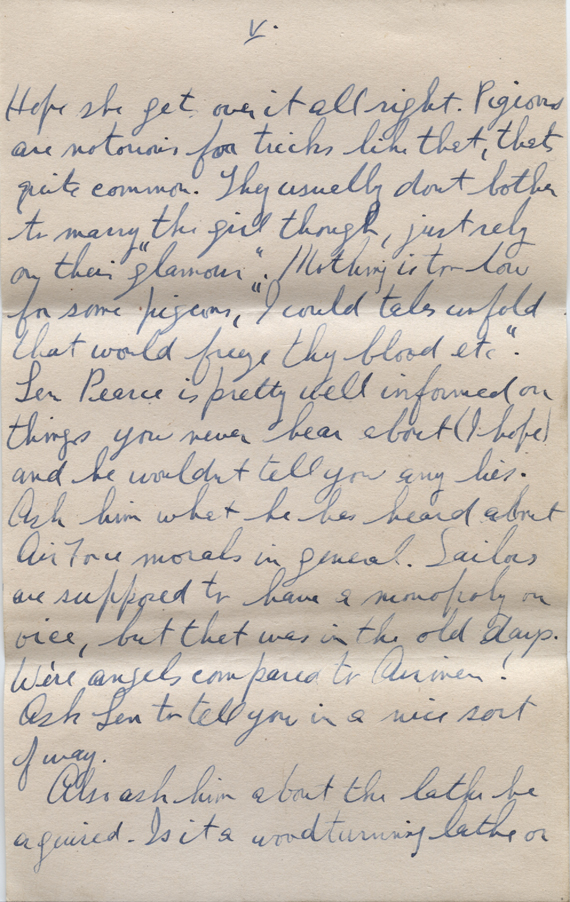 V.
Hope she get over it all right. Pigeons
are notorious for tricks like that, thats
quite common. They usually dont bother
to marry the girl though, just rely
on their "glamour". Nothing is too low
for some pigeons, "I could tales unfold
that would freeze thy blood etc".
Len Pearce is pretty well informed on
things you never hear about (I hope)
and he wouldnt tell you any lies.
Ask him what he has heard about
Air Force morals in general. Sailors
are supposed to have a monopoly on
vice, but that was in the old days.
We're angels compared to Airmen!
Ask Len to tell you in a nice sort
of way.
Also ask him about the lathe he
aquired - Is it a woodturning lathe or